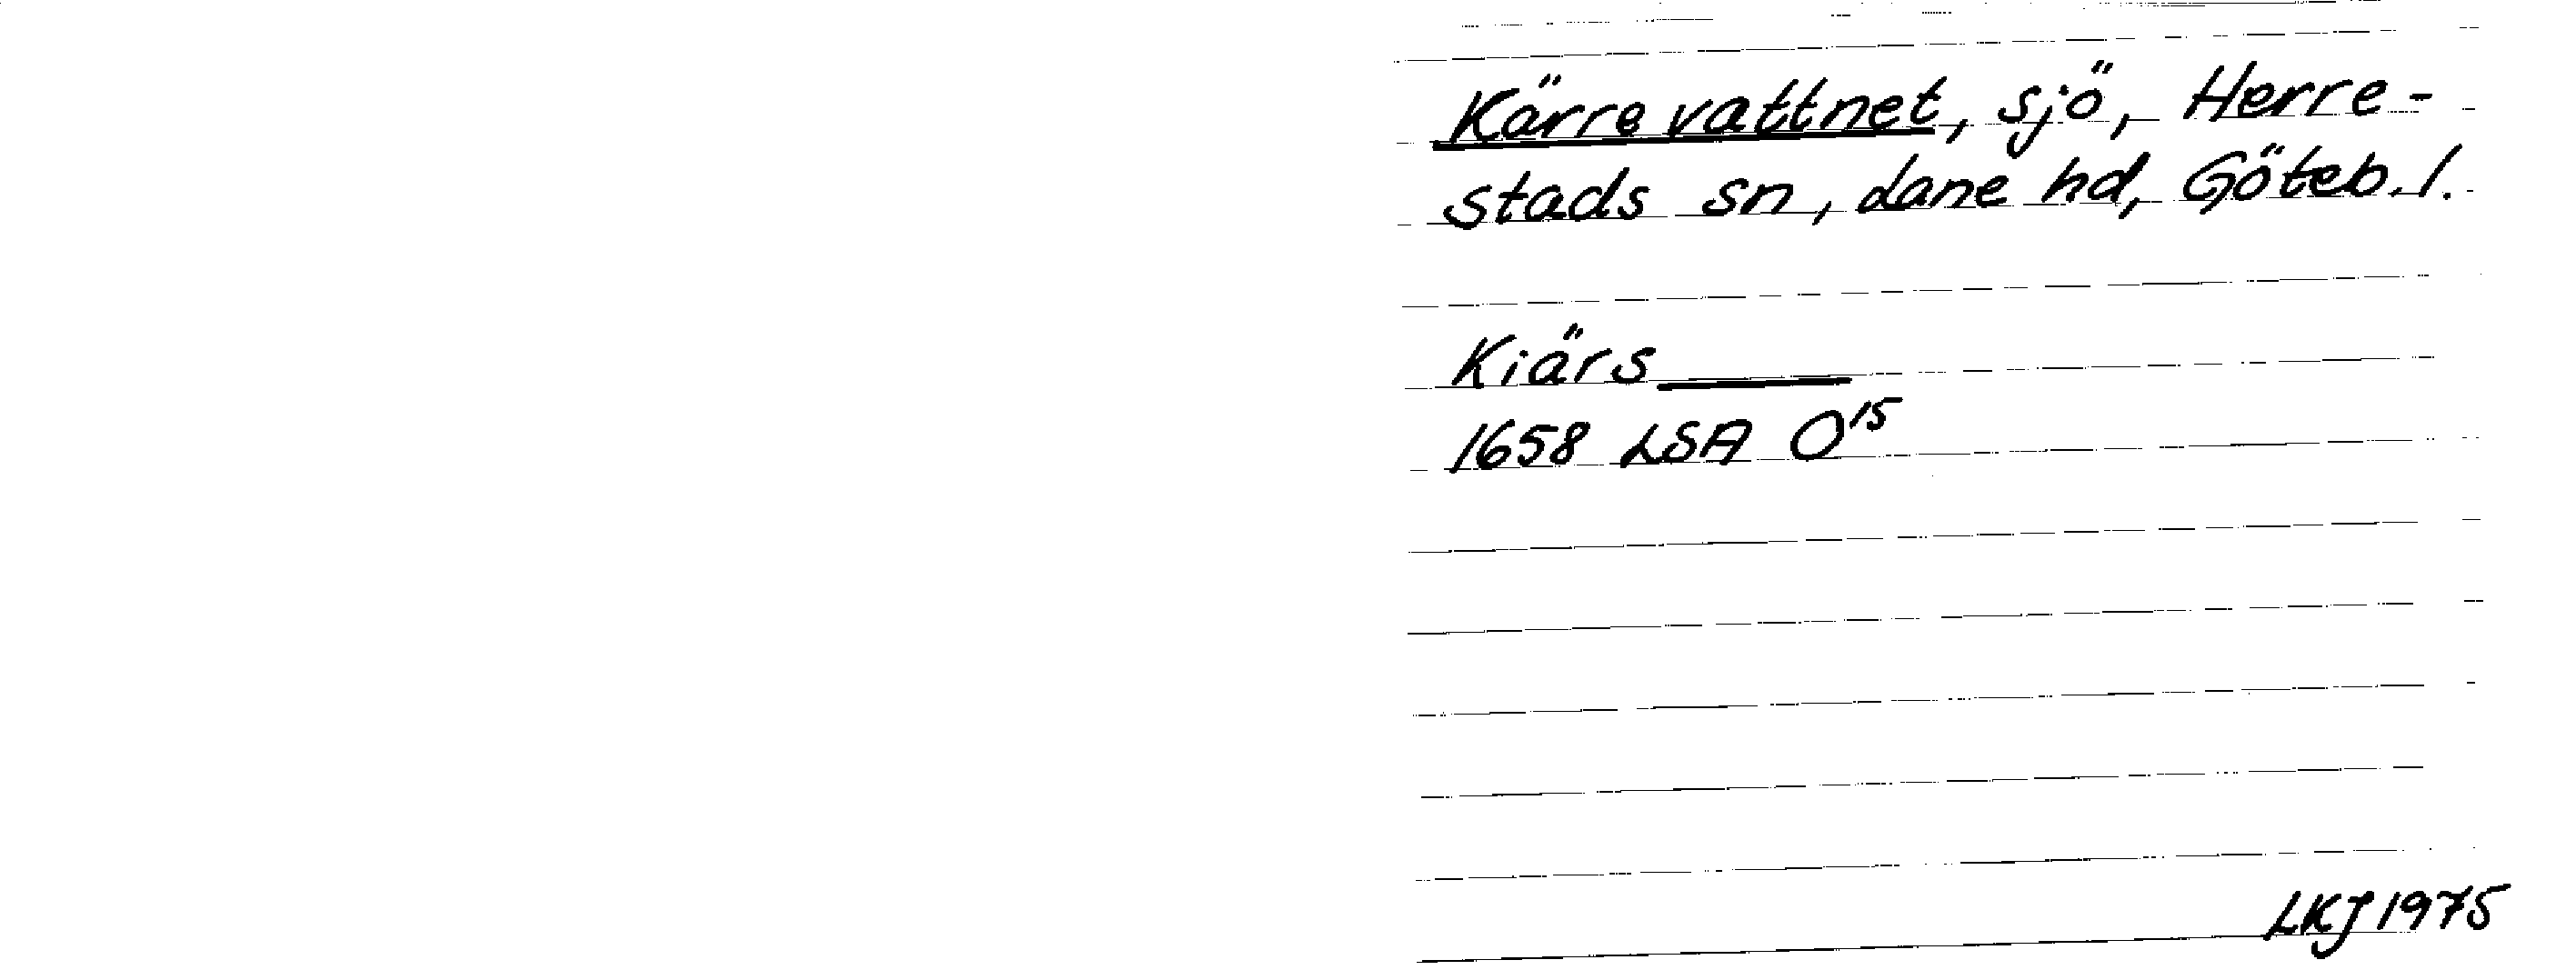 Kärrevattnet, sjö, Herre-
stads sn, Lane hd, Göteb. l.
Kiärs
1658 LSA O15
LKJ 1975